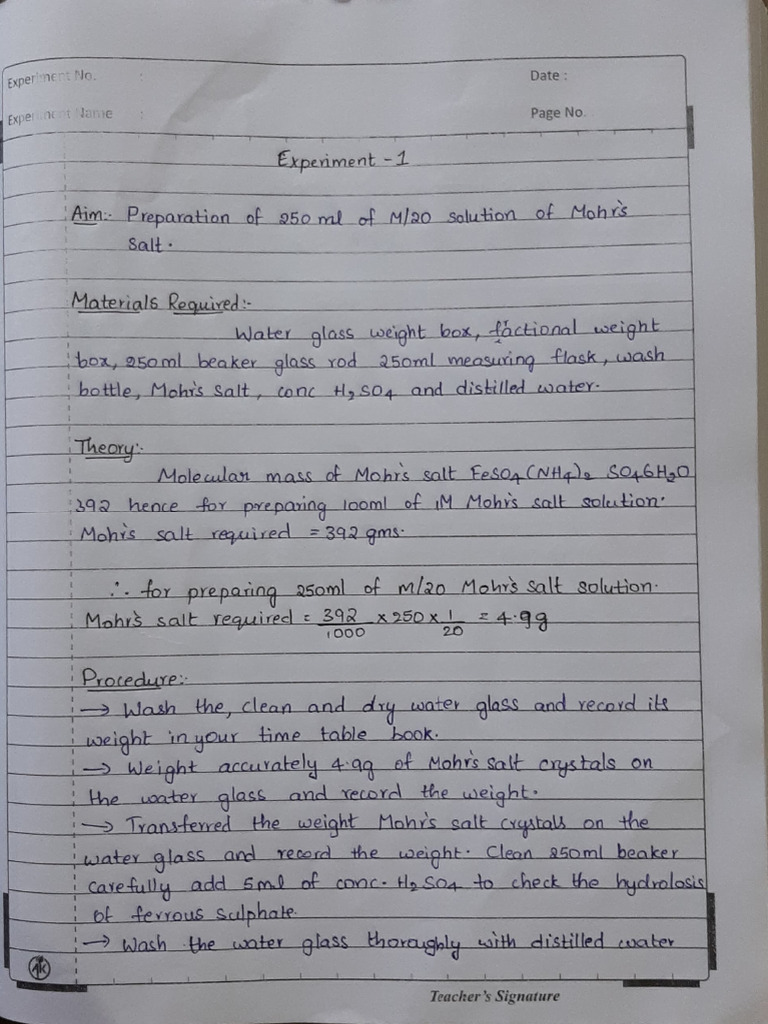 Experiment No. :
Date :
Experiment Name :
Page No.
Experiment - 1
Aim:- Preparation of 250 ml of M/20 solution of Mohr's
Salt.
Materials Required:-
Water glass weight box, factional weight
box, 250ml beaker glass rod 250ml measuring flask, wash
bottle, Mohr's Salt, conc H₂SO₄ and distilled water.
Theory:-
Molecular mass of Mohr's salt FeSO₄(NH₄)₂ SO₄6H₂O
392 hence for preparing 100ml of 1M Mohr's salt solution.
Mohr's salt required = 392 gms.
∴ for preparing 250ml of M/20 Mohr's salt solution.
Mohr's salt required = 392/1000 × 250 × 1/20 = 4.9g
Procedure:-
→ Wash the, clean and dry water glass and record its
weight in your time table book.
→ Weight accurately 4.9g of Mohr's salt crystals on
the water glass and record the weight.
→ Transferred the weight Mohr's salt crystals on the
water glass and record the weight. Clean 250ml beaker
carefully add 5ml of conc. H₂SO₄ to check the hydrolosis
of ferrous sulphate.
→ Wash the water glass thoroughly with distilled water
AK
Teacher's Signature